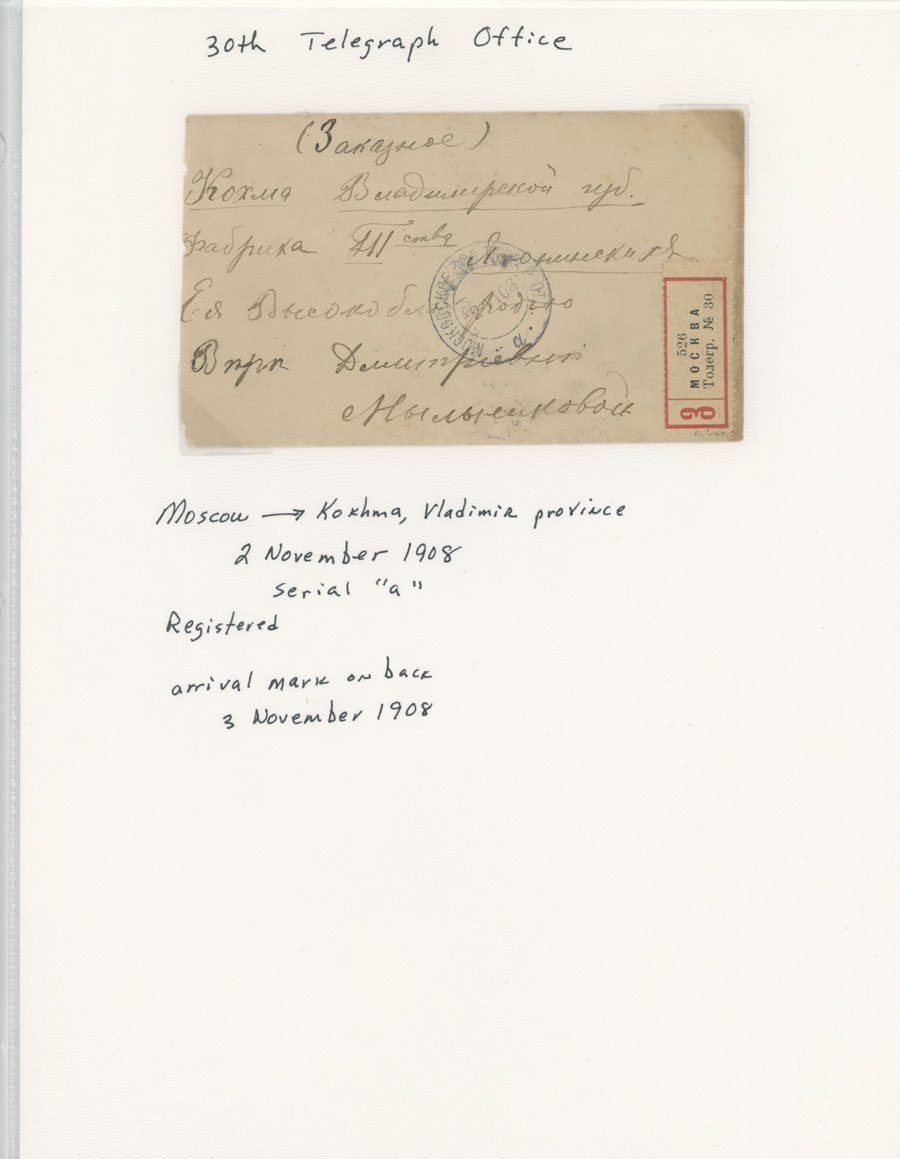 30th Telegraph Office
(Заказное)
Кохма Владимирской губ.
Фабрика Т ства
Ея Высокоблагородію
Дмитріевны
Мыльниковой
МОСКОВСКОЕ 30
"а"
526
МОСКВА
Телегр. № 30
З
Moscow → Kokhma, Vladimir province
2 November 1908
serial "a"
Registered
arrival mark on back
3 November 1908